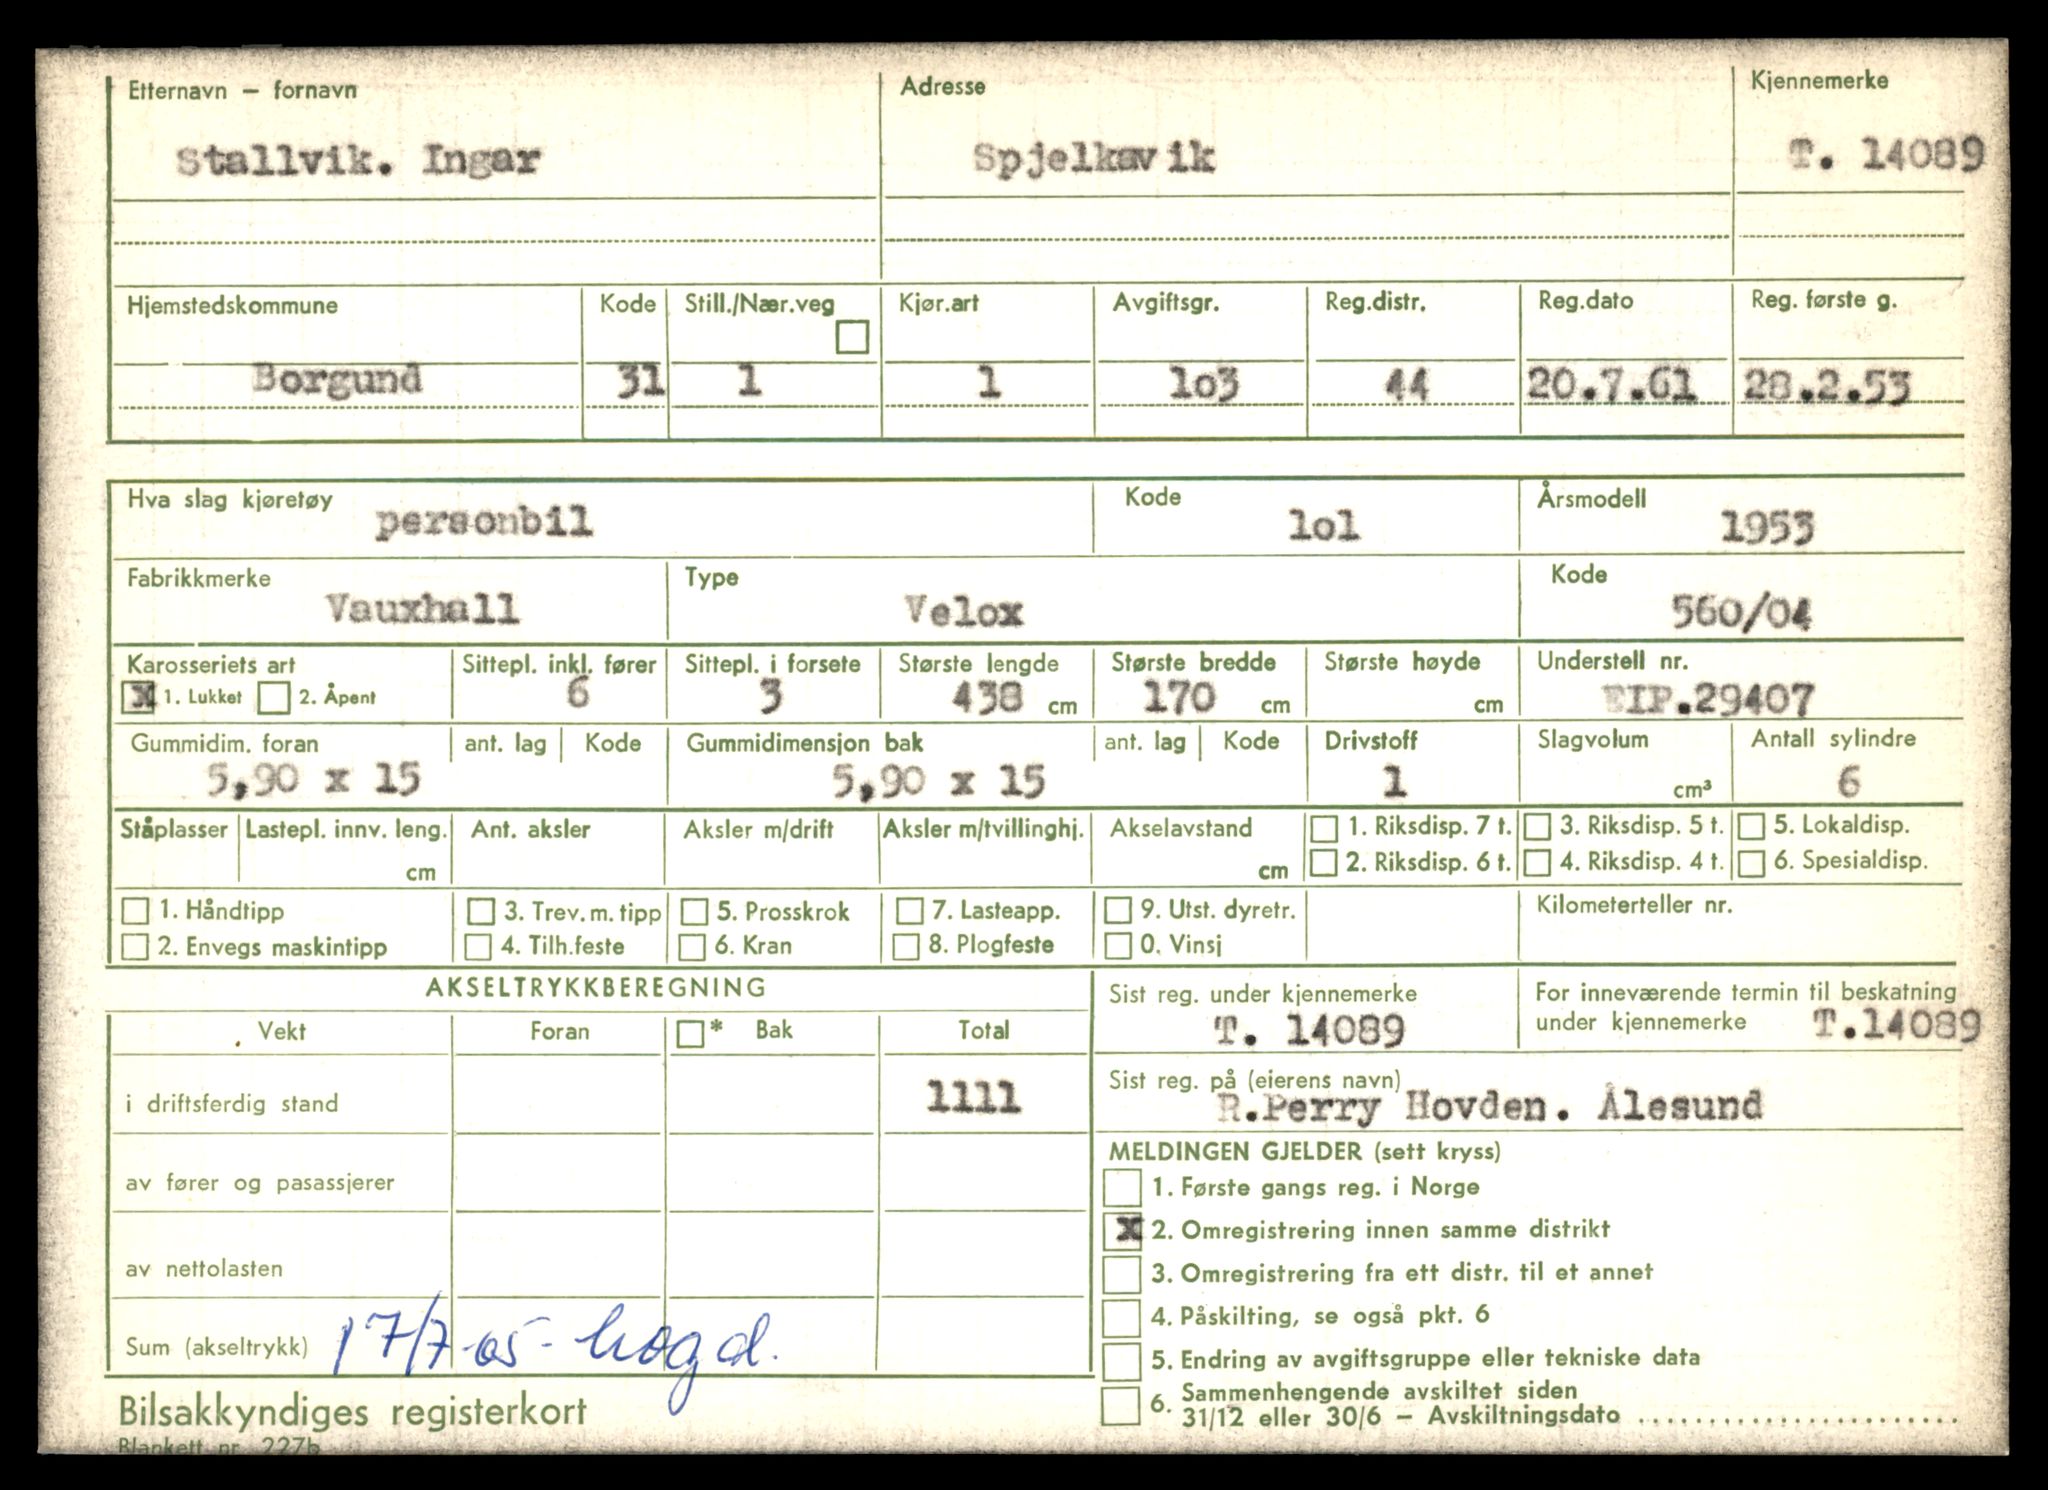 Etternavn – fornavn Adresse Kjennemerke
Stallvik. Ingar Spjelkavik T. 14089
Hjemstedskommune Kode Still./Nær.veg Kjør.art Avgiftsgr. Reg.distr. Reg.dato Reg. første g.
Borgund 31 1 1 1o3 44 20.7.61 28.2.53
Hva slag kjøretøy personbil Kode 1o1 Årsmodell 1953
Fabrikkmerke Vauxhall Type Velox Kode 560/04
Karosseriets art Sittepl. inkl. fører Sittepl. i forsete Største lengde Største bredde Største høyde Understell nr.
X 1. Lukket 2. Åpent 6 3 438 cm 170 cm cm EIP.29407
Gummidim. foran ant. lag Kode Gummidimensjon bak ant. lag Kode Drivstoff Slagvolum Antall sylindre
5,90 x 15 5,90 x 15 1 cm³ 6
Ståplasser Lastepl. innv. leng. Ant. aksler Aksler m/drift Aksler m/tvillinghj. Akselavstand 1. Riksdisp. 7 t. 3. Riksdisp. 5 t. 5. Lokaldisp.
cm cm 2. Riksdisp. 6 t. 4. Riksdisp. 4 t. 6. Spesialdisp.
1. Håndtipp 3. Trev. m. tipp 5. Prosskrok 7. Lasteapp. 9. Utst. dyretr. Kilometerteller nr.
2. Envegs maskintipp 4. Tilh.feste 6. Kran 8. Plogfeste 0. Vinsj
AKSELTRYKKBEREGNING
Vekt Foran * Bak Total
i driftsferdig stand 1111
av fører og pasassjerer
av nettolasten
Sum (akseltrykk) 17/7-65- hogd.
Sist reg. under kjennemerke For inneværende termin til beskatning
T. 14089 under kjennemerke T.14089
Sist reg. på (eierens navn)
R.Perry Hovden. Ålesund
MELDINGEN GJELDER (sett kryss)
1. Første gangs reg. i Norge
X 2. Omregistrering innen samme distrikt
3. Omregistrering fra ett distr. til et annet
4. Påskilting, se også pkt. 6
5. Endring av avgiftsgruppe eller tekniske data
6. Sammenhengende avskiltet siden
31/12 eller 30/6 – Avskiltningsdato ........................
Bilsakkyndiges registerkort
Blankett nr. 227b